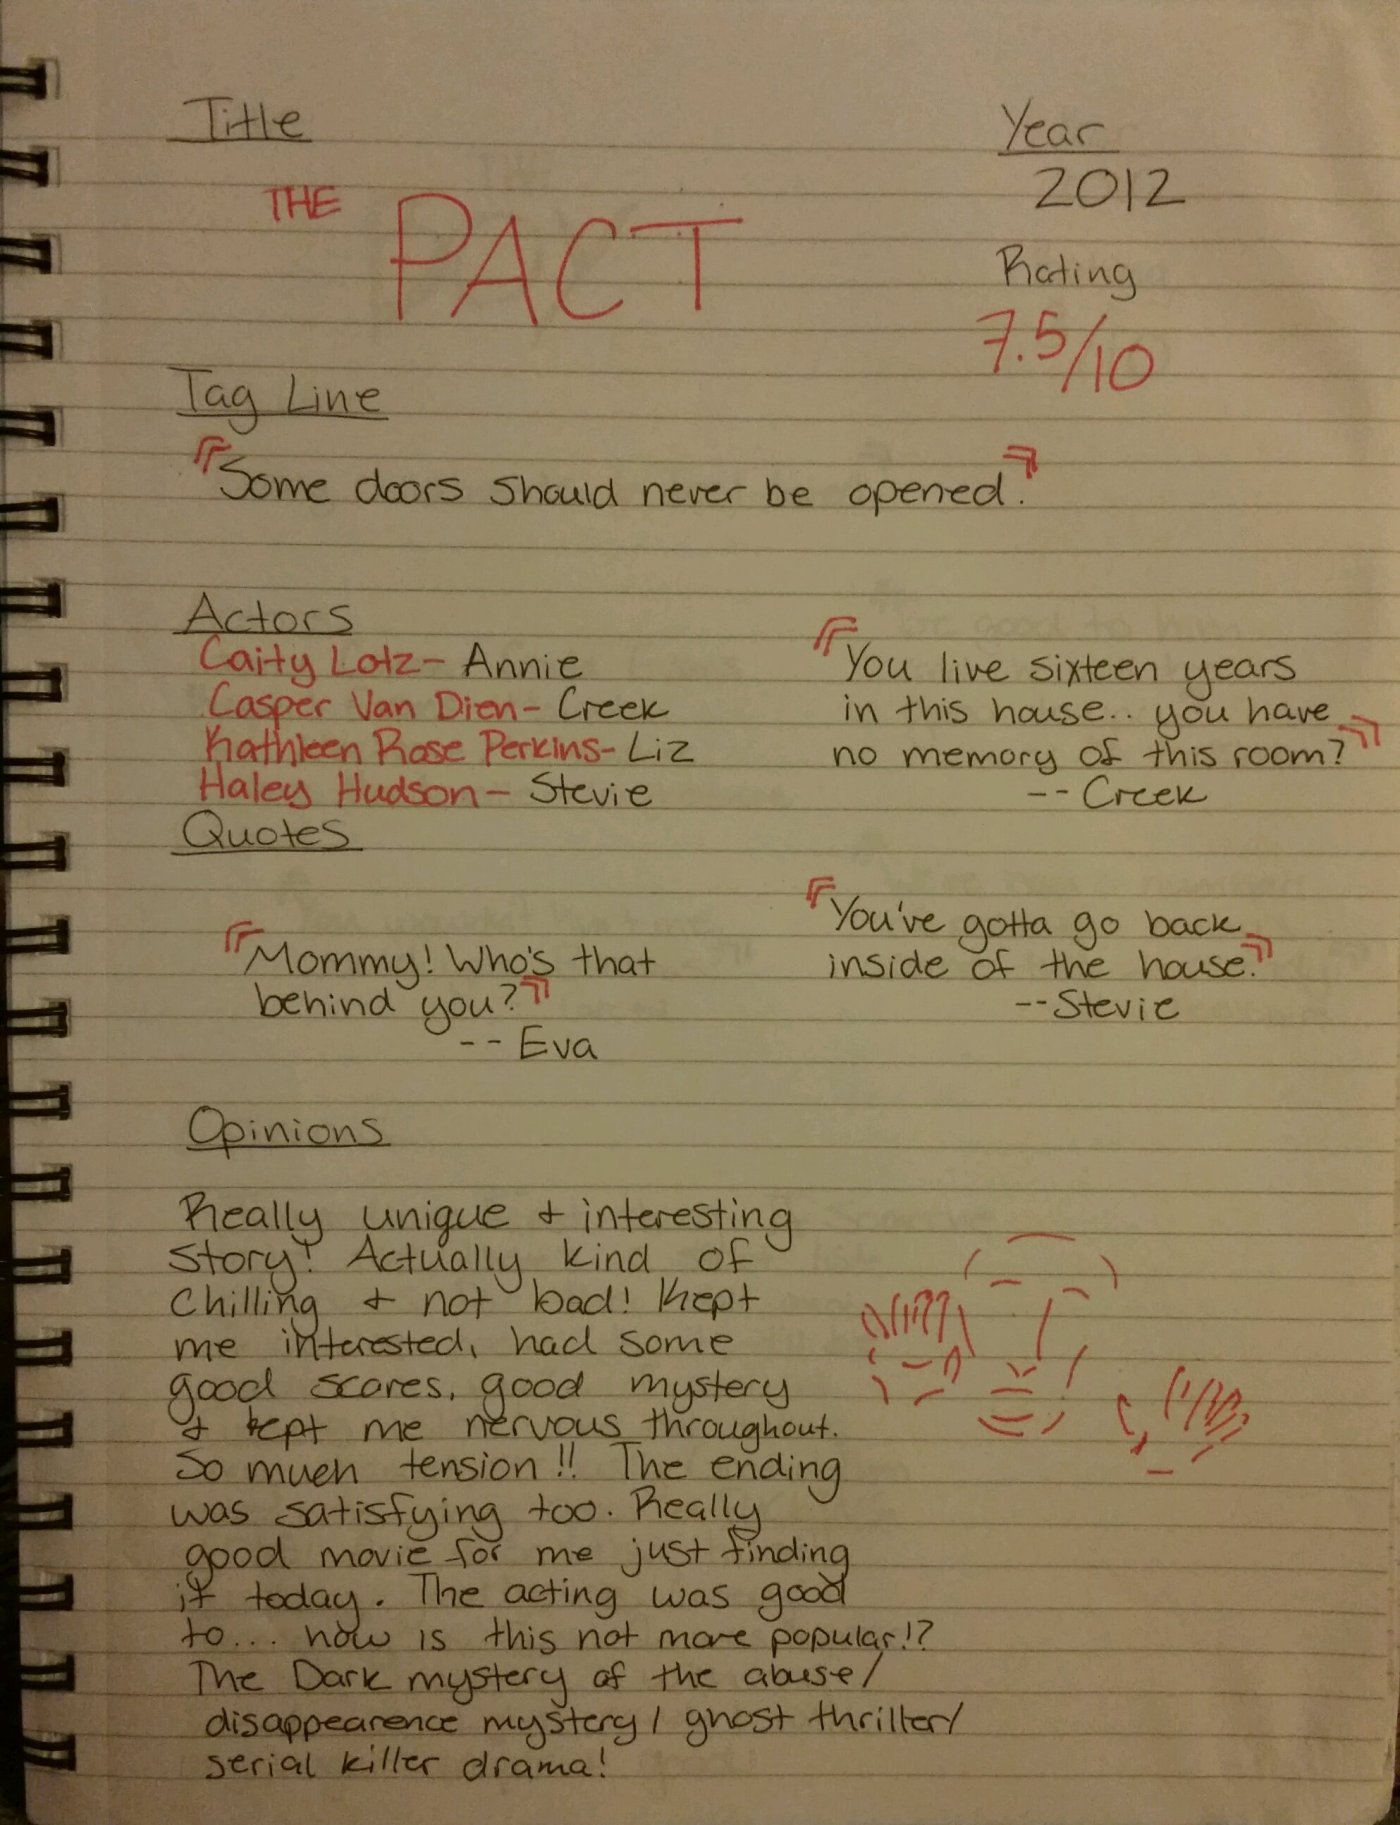 Title
THE PACT
Year
2012
Rating
7.5/10
Tag Line
"Some doors should never be opened."
Actors
Caity Lotz - Annie
Casper Van Dien - Creek
Kathleen Rose Perkins - Liz
Haley Hudson - Stevie
"You live sixteen years
in this house.. you have
no memory of this room?"
-- Creek
Quotes
"Mommy! Who's that
behind you?"
-- Eva
"You've gotta go back
inside of the house."
-- Stevie
Opinions
Really unique & interesting
story! Actually kind of
chilling & not bad! Kept
me interested, had some
good scares, good mystery
& kept me nervous throughout.
So much tension!! The ending
was satisfying too. Really
good movie for me just finding
it today. The acting was good
to... how is this not more popular!?
The Dark mystery of the abuse/
disappearence mystery/ ghost thriller/
serial killer drama!